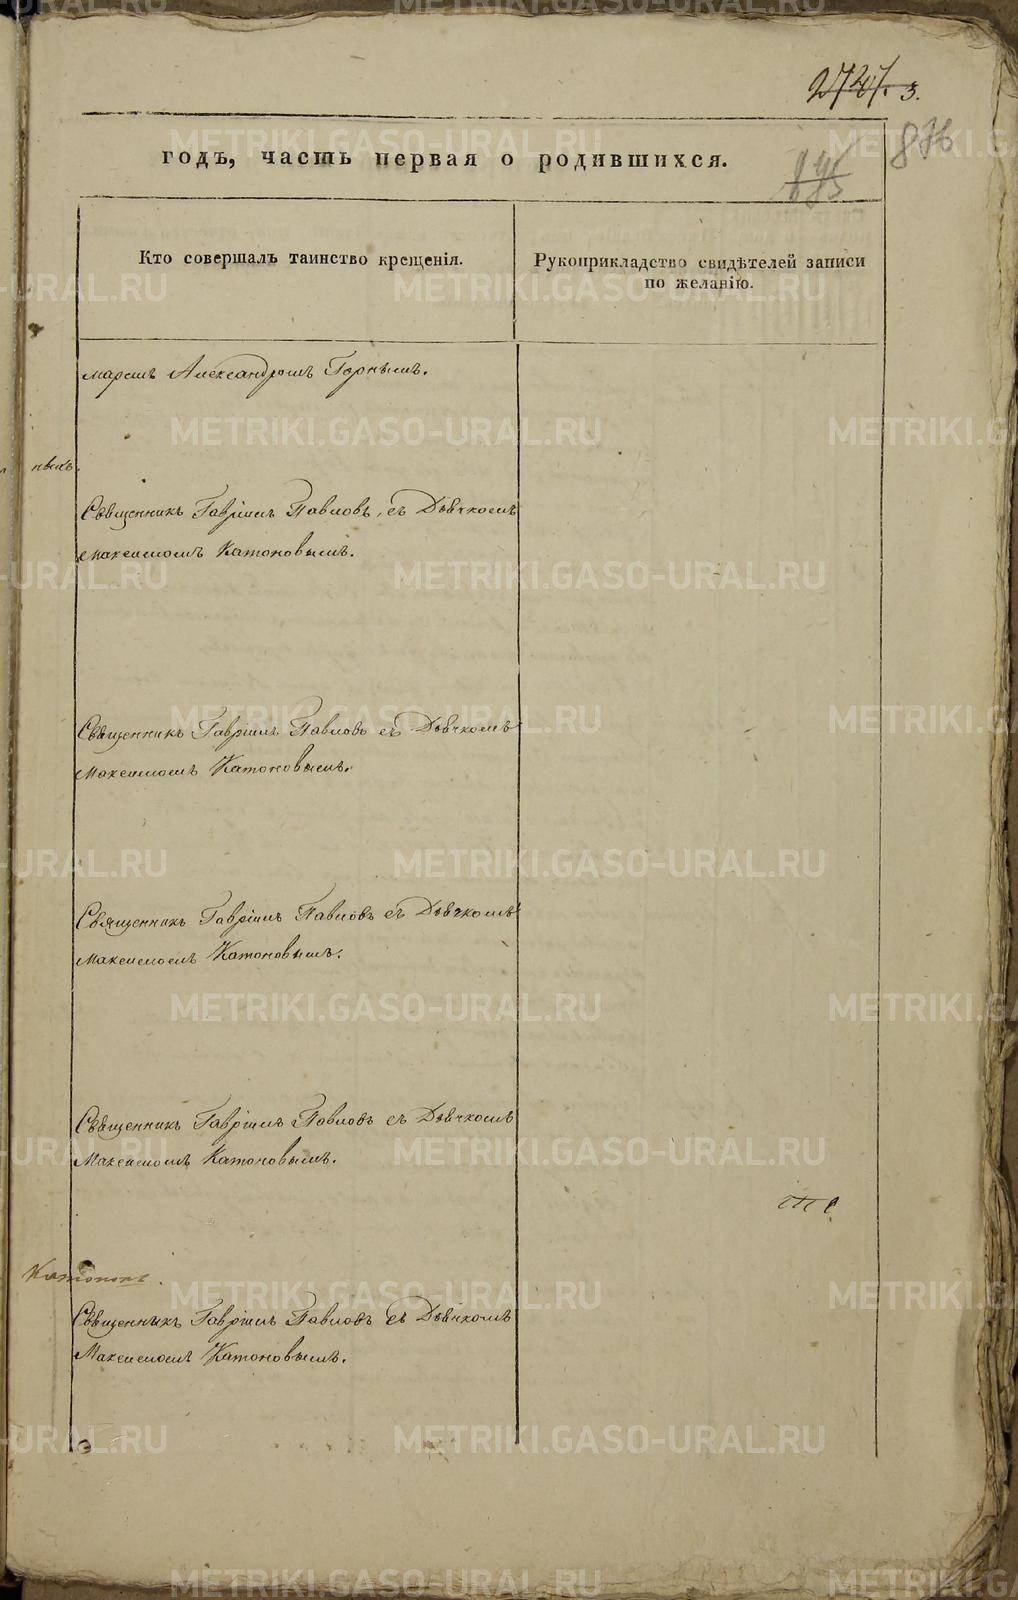 годъ, часть первая о родившихся.
876
Кто совершалъ таинство крещенія.
Рукоприкладство свидѣтелей записи
по желанію.
маремъ Александромъ Горнымъ.
Священникъ Гавріилъ Павловъ, съ Дьячкомъ
Максимомъ Катоновымъ.
Священникъ Гавріилъ Павловъ съ Дьячкомъ
Максимомъ Катоновымъ.
Священникъ Гавріилъ Павловъ съ Дьячкомъ
Максимомъ Катоновымъ.
Священникъ Гавріилъ Павловъ съ Дьячкомъ
Максимомъ Катоновымъ.
Катоновъ.
Священникъ Гавріилъ Павловъ съ Дьячкомъ
Максимомъ Катоновымъ.
METRIKI.GASO-URAL.RU